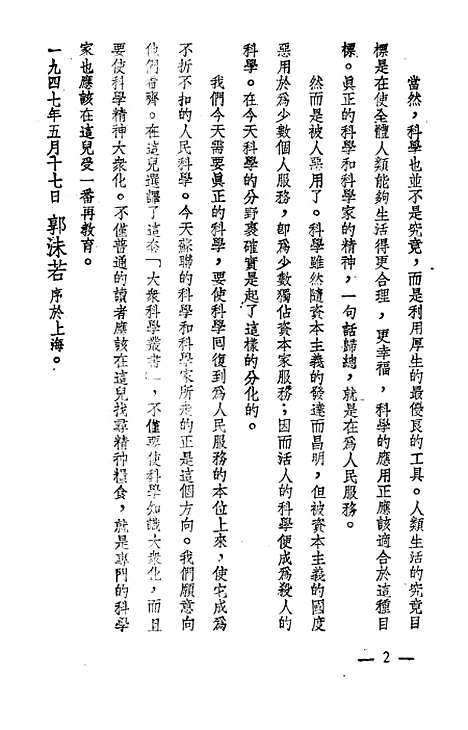 當然,科學也並不是究竟,而是利用厚生的最優良的工具。人類生活的究竟目
標是在使全體人類能夠生活得更合理,更幸福,科學的應用正應該適合於這種目
標。眞正的科學和科學家的精神,一句話歸總,就是在爲人民服務。
然而是被人惡用了。科學雖然隨資本主義的發達而昌明,但被資本主義的國度
惡用於爲少數個人服務,卽爲少數獨佔資本家服務;因而活人的科學便成爲殺人的
科學。在今天科學的分野裏確實是起了這樣的分化的。
我們今天需要眞正的科學,要使科學囘復到爲人民服務的本位上來,使它成爲
不折不扣的人民科學。今天蘇聯的科學和科學家所走的正是這個方向。我們願意向
他們看齊。在這兒選譯了這套「大衆科學叢書」,不僅要使科學知識大衆化,而且
要使科學精神大衆化。不僅普通的讀者應該在這兒找尋精神糧食,就是專門的科學
家也應該在這兒受一番再教育。
一九四七年五月十七日 郭沫若 序於上海。
— 2 —